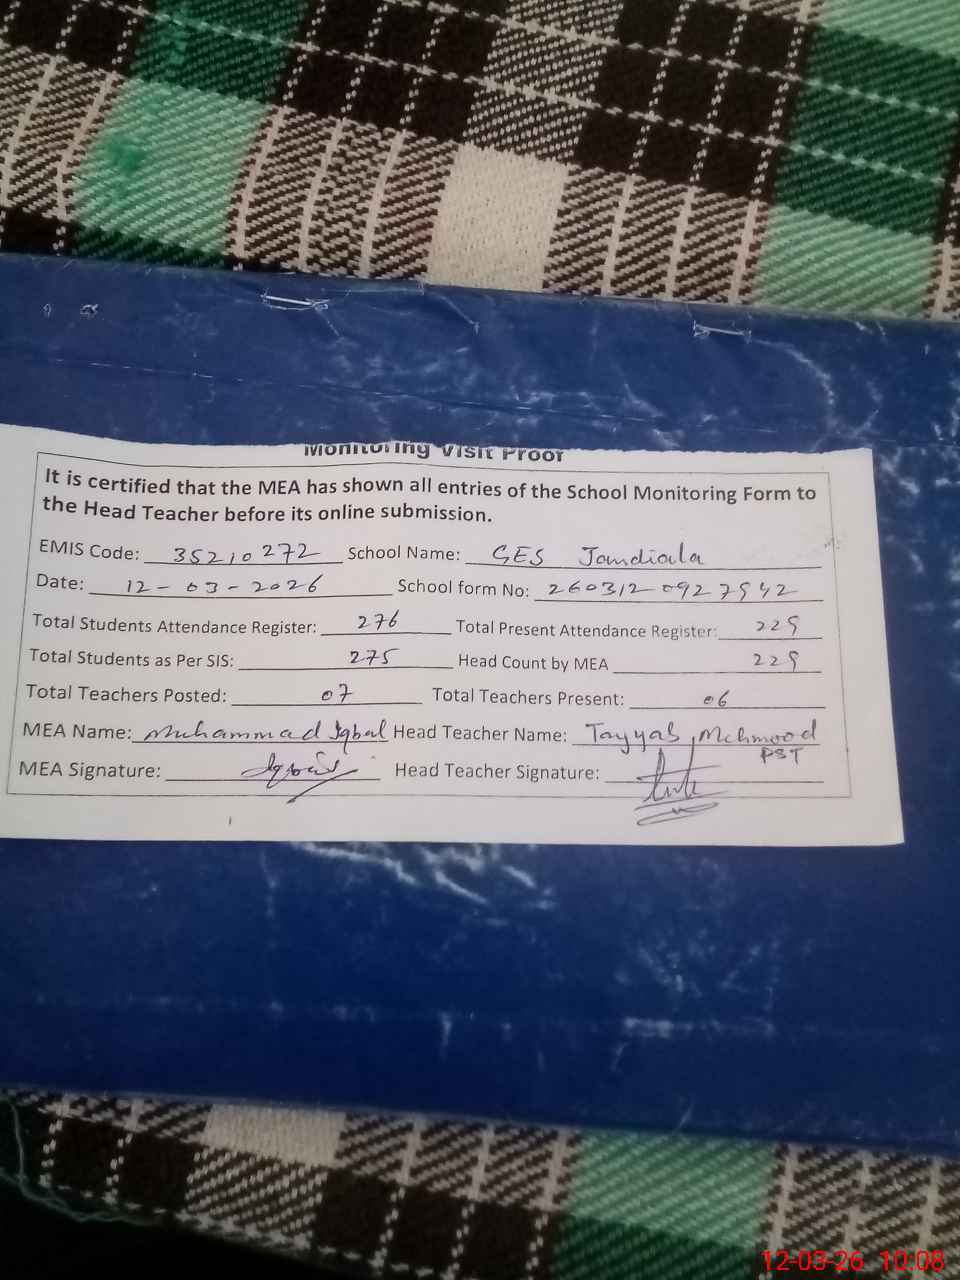 Monitoring Visit Proof
It is certified that the MEA has shown all entries of the School Monitoring Form to
the Head Teacher before its online submission.
EMIS Code: 35210272 School Name: GES Jandiala
Date: 12-03-2026 School form No:
Total Students Attendance Register: 276 Total Present Attendance Register: 225
Total Students as Per SIS: 275 Head Count by MEA 225
Total Teachers Posted: 07 Total Teachers Present: 06
MEA Name: Muhammad Iqbal Head Teacher Name: Tayyab Mehmood
PST
MEA Signature: Head Teacher Signature:
12-03-26 10:08